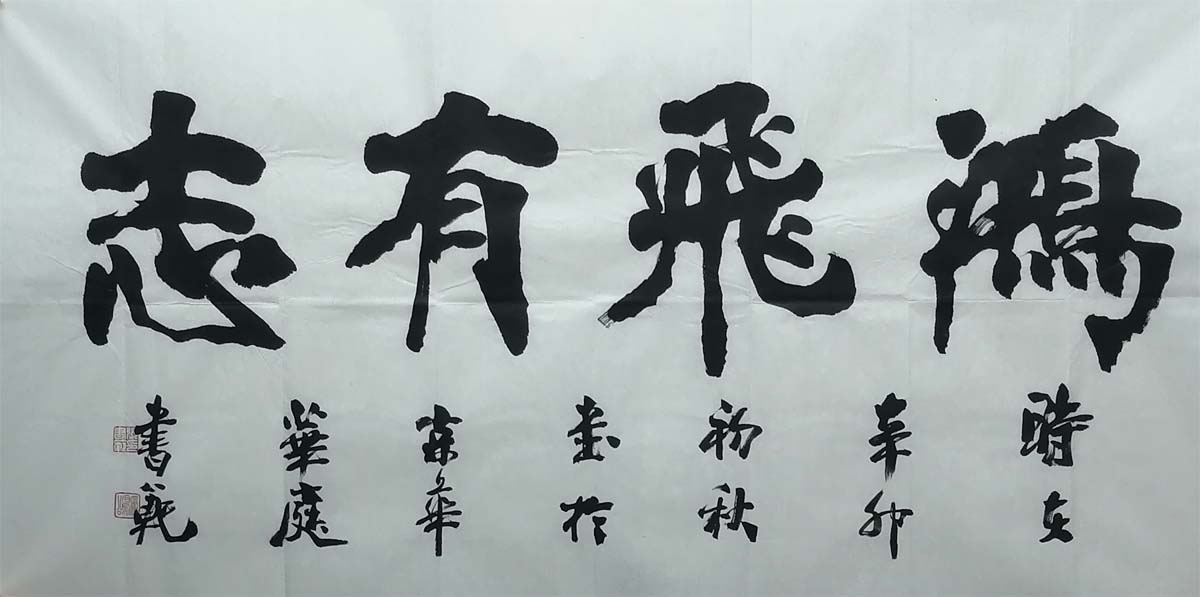 鴻飛有志
時在
辛卯
初秋
書於
華
華庭
書範